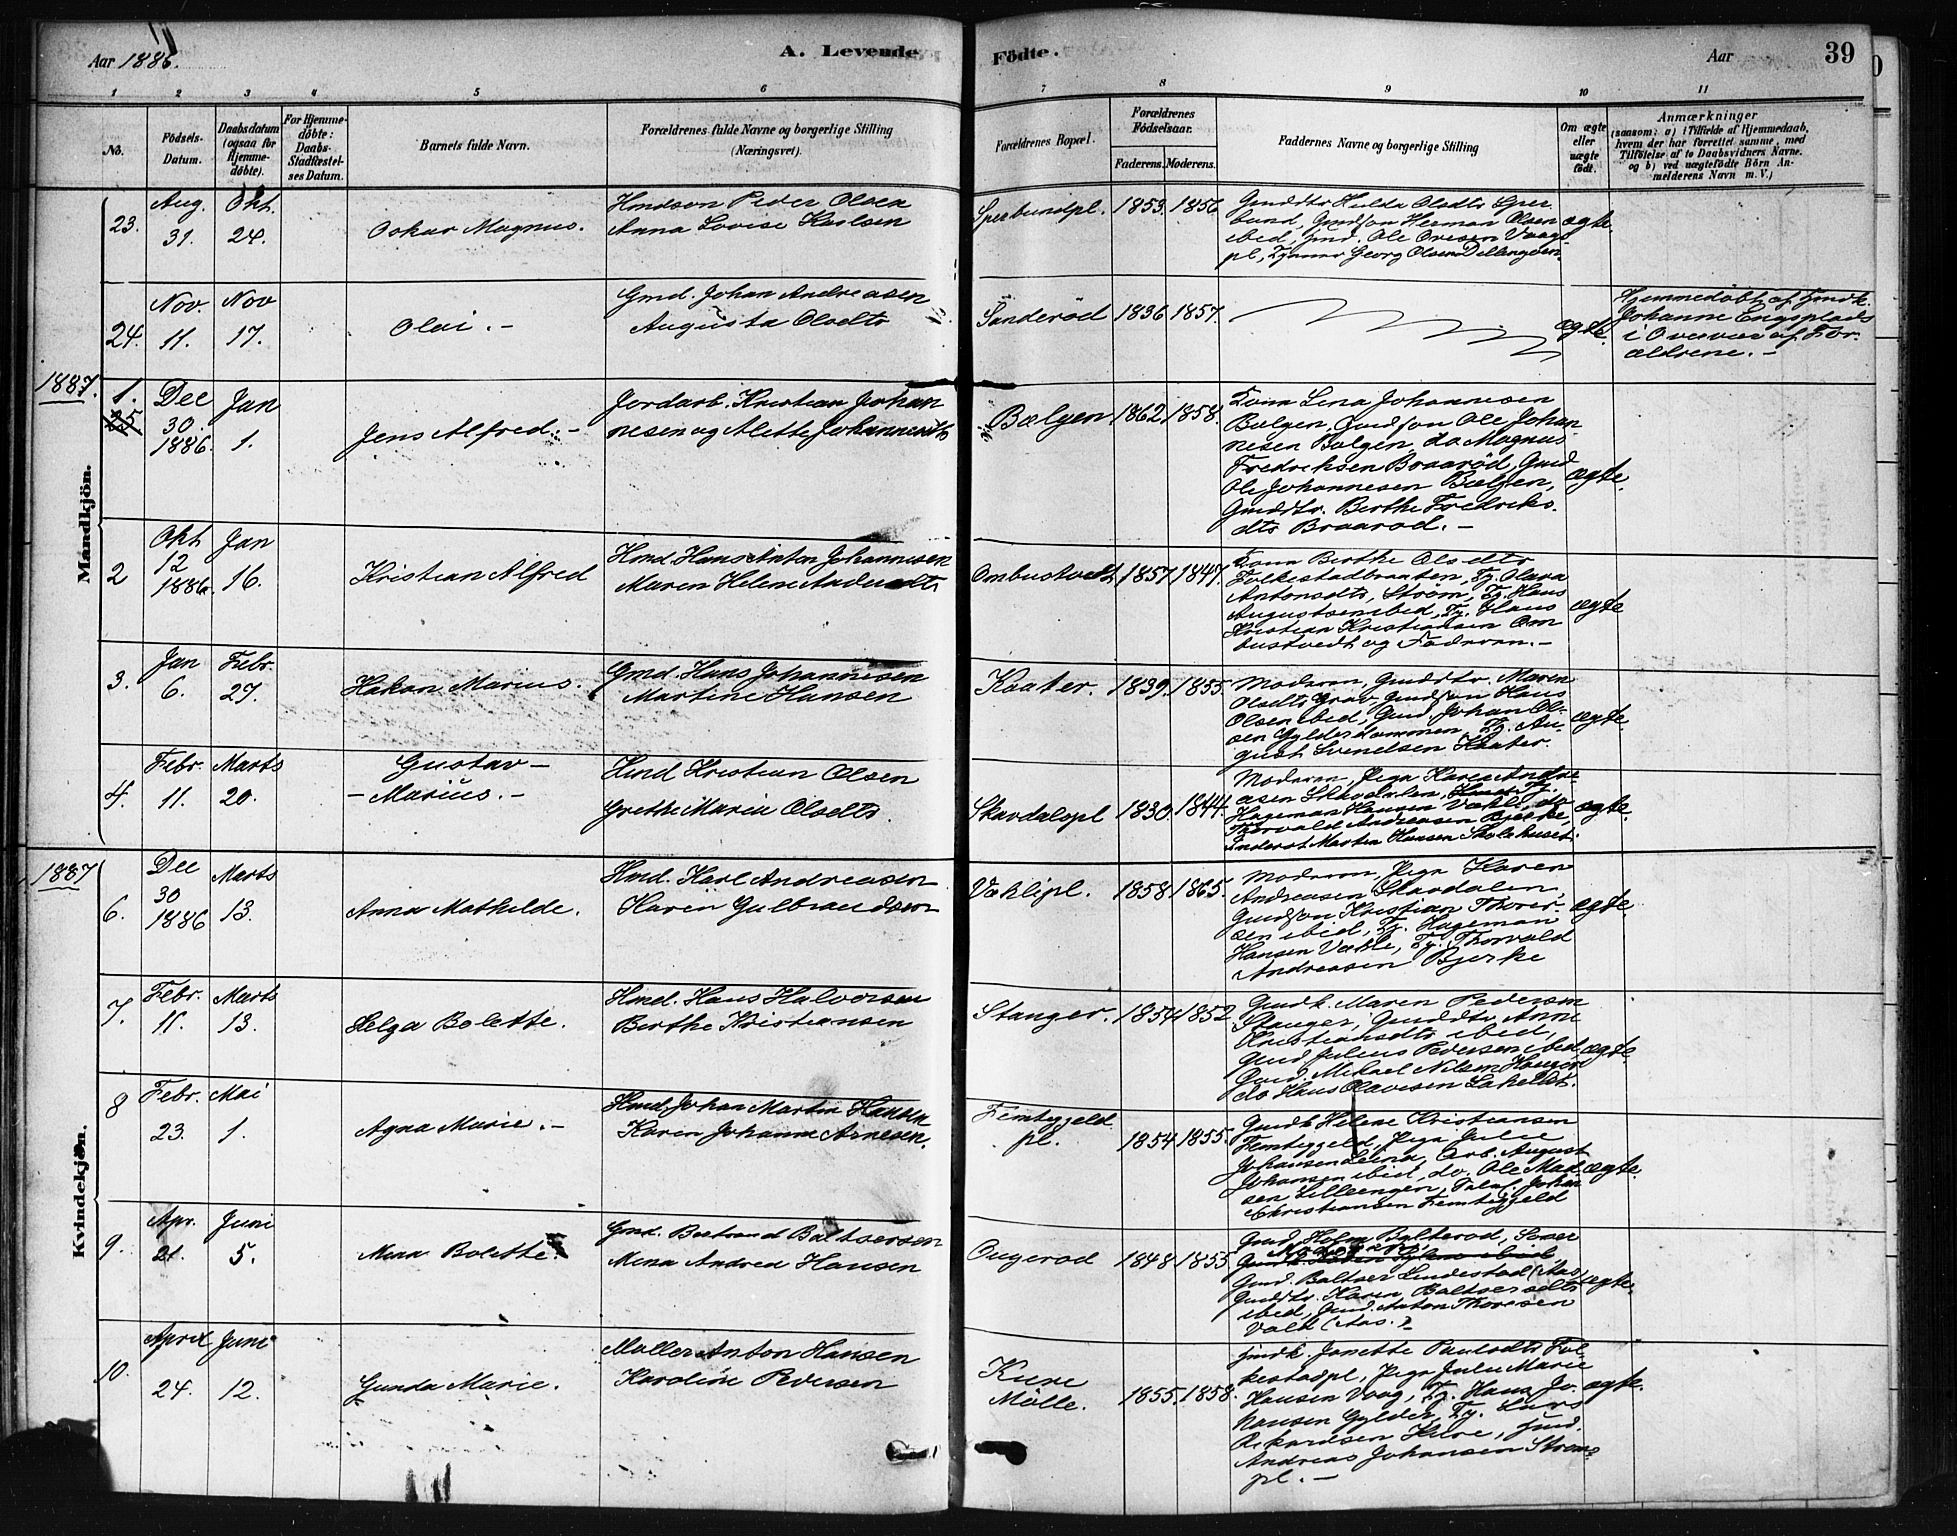 Aar 1886.
A. Levende
Födte.
Aar
39
1 2 3 4 5 6 7 8 9 10 11
No.
Födsels-Datum.
Daabsdatum (ogsaa for Hjemme-döbte).
For Hjemme-döbte: Daabs-Stadfæstel-ses Datum.
Barnets fulde Navn.
Forældrenes fulde Navne og borgerlige Stilling (Næringsvei).
Forældrenes Bopæl.
Forældrenes Födselsaar.
Faderens. Moderens.
Faddernes Navne og borgerlige Stilling
Om ægte eller uægte födt.
Anmærkninger
(saasom: a) i Tilfælde af Hjemmedaab,
hvem der har forrettet samme, med
Tilföielse af to Daabsvidners Navne,
og b) ved uægtefödte Börn An-
melderens Navn m. V.)
Mandkjön.
23.
Aug. 31.
Okt. 24.
Oskar Magnus.
Hmdson Peder Olsen
Anna Lovise Karlsen
Sperbundpl.
1853. 1856
Gmddtr Hulda Olsdtr Sper
bund, Gmdson Herman Olsen
ibid, Gmd. Ole Olesen Vaag
pl., Georg Olsen Dellingoen.
ægte.
24.
Nov. 11.
Nov 17.
Olai. -
Gmd. Johan Andreasen
Augusta Olsdtr
Sanderöd
1836 1857.
ægte.
Hjemmedöbt af Gmdk.
Johanne Engsplads
i Overvær af For-
ældrene. -
1887.
1.
25
Dec 30. 1886.
Jan 1.
Jens Alfred. -
Jordarb. Kristian Johan
nesen og Alette Johannesdtr
Bælgen
1862 1858.
Kona Lina Johannesen
Bælgen, Gmdson Ole Johan
nesen Bælgen, do Magnus
Fredriksen Braaröd, Gmd
Ole Johannesen Bælgen,
Gmddtr. Berthe Fredriks.
dtr Braaröd. -
ægte.
2
Okt 12 1886.
Jan 16.
Kristian Alfred
Hmd Hans Anton Johannesen
Maren Helene Andersdtr
Ombustvedt
1857 1847.
Kona Berthe Olsdtr
Folkestadbraaten, Pg. Olava
Antonsdtr, Ström, Tg. Hans
Augustsen ibid, Tg. Hans
Kristian Kristiansen Om
bustvedt og Faderen. -
ægte
3.
Jan 6.
Febr. 27.
Hakon Marius.
Gmd. Hans Johannesen
Martine Hansen
Kaater.
1839. 1855.
Moderen, Gmddtr. Maren
Olsdtr Grav, Gmdson Hans
Olsen ibid, Gmd. Johan Ol-
sen Gylderdammen, Tg. Au-
gust Svendsen Kaater.
ægte.
4.
Febr. 11.
Marts 20.
Gustav -
- Marius. -
Hmd Kristian Olsen
Grethe Maria Olsdtr.
Skavdalspl
1830. 1844.
Moderen, Pige Karen Andre-
asen Skavdalen, Tg.
Hageman Hansen Vækle, do
Thorvald Andreasen Bjerke,
Inderst Martin Hansen Skolehuset.
ægte.
1887
Kvindekjön.
6.
Dec 30 1886
Marts 13.
Anna Mathilde.
Hmd. Karl Andreasen
Karen Gulbrandsen
Væklepl.
1858 1865.
Moderen, Pige Karen
Andreasen Skavdalen,
Gmdson Kristian Thorer-
sen ibid, Tg. Hageman
Hansen Vækle, Tg. Thorvald
Andreasen Bjerke
ægte.
7.
Febr. 11.
Marts 13.
Helga Bolette.
Hmd. Hans Halvorsen
Berthe Kristiansen
Stanger.
1854 1852
Gmdk. Maren Pedersen
Stanger, Gmddtr Anne
Kristiansdtr ibid,
Gmd. Julius Pedersen ibid,
Gmd. Mikael Nilsen Haugen
do Hans Olavesen Sakeldst.
ægte
8
Febr. 23.
Mai 1.
Agna Marie. -
Hmd. Johan Martin Hansen
Karen Johanne Arnesen.
Femtyggeld pl.
1854 1855.
Gmdk Helene Kristiansen
Femtyggeld, Pige Julie
Johansen Leina, Arb. August
Johansen ibid, do. Ole Mad
sen Lilleengen, Johan
Christiansen Femtyggeld
ægte.
9.
Apr. 21.
Juni 5.
Mina Bolette.
Gmd. Bertrand Baltsersen
Mina Andrea Hansen
Ougerod
1848 1855
Gmd. Holm Bylteröd,
Moderen,
Gmd. Baltser Lindestad (Aas)
Gmddtr. Karen Baltsersdtr
ibid, Gmd. Anton Thoresen
Vold (Aas.)
ægte.
10.
April 24.
Juni 12.
Gunda Marie.
Møller Anton Hansen
Karoline Pedersen
Kure Mölle.
1855. 1858.
Gmdk. Janette Paulsdtr Fol-
kestadpl, Pige Julie Marie
Hansen Vaag, Tg. Hans Jo-
hansen Gylder, Tg. Lars
Rikardsen Kure, Hmd.
Andreas Johansen Ström-
pl. -
ægte.